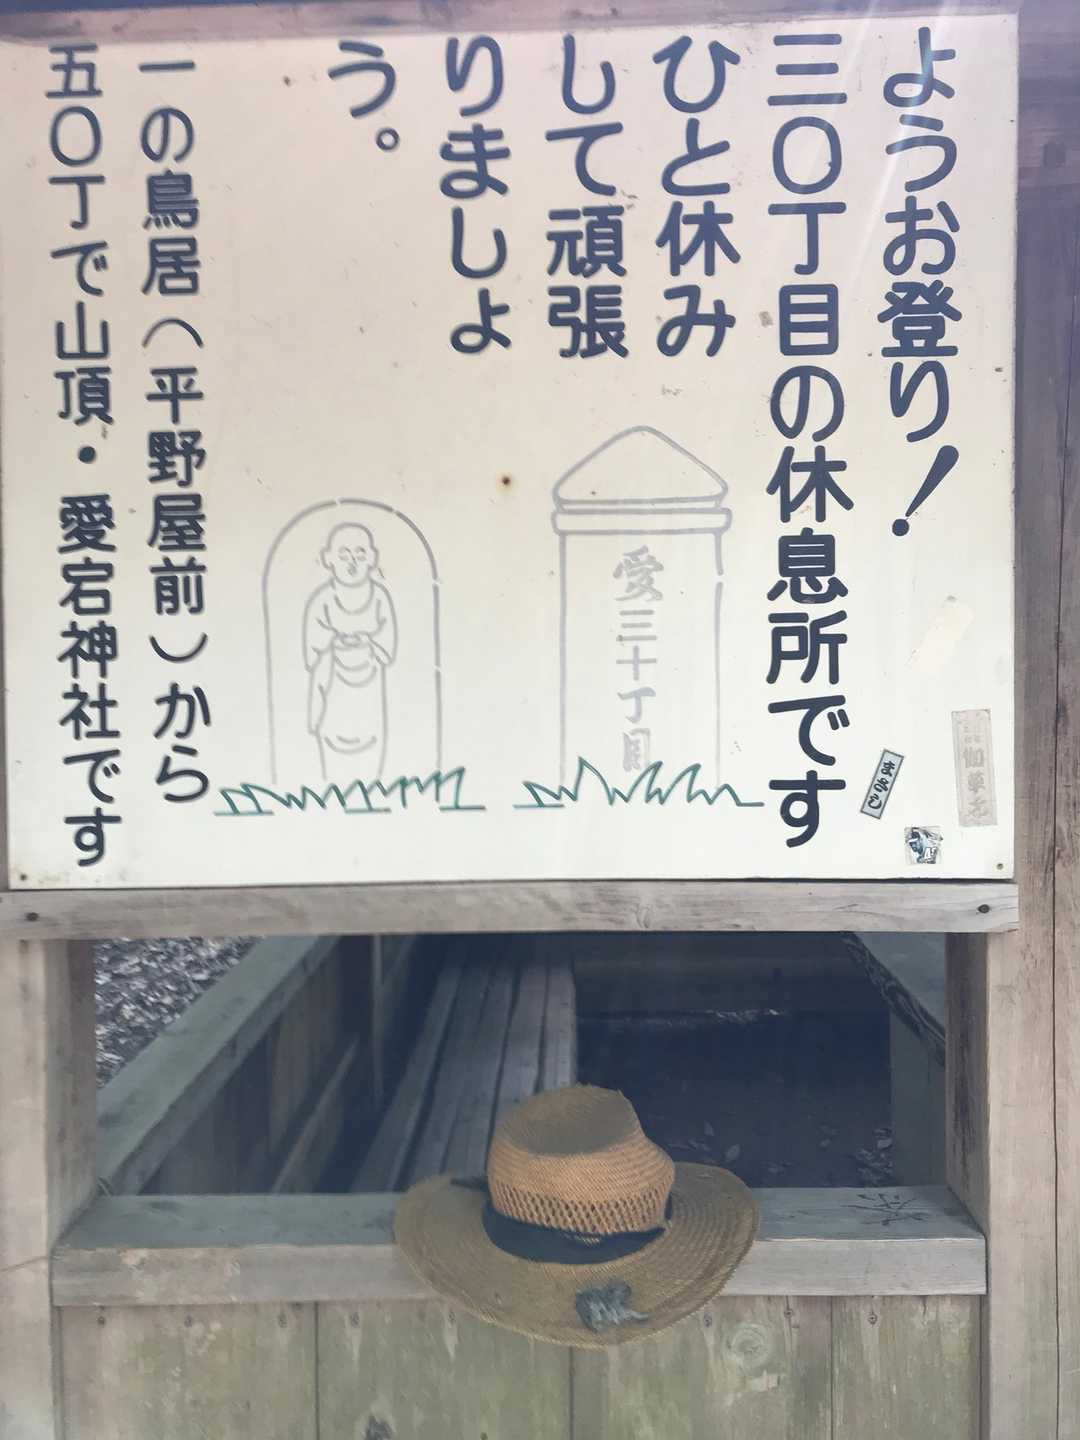 ようお登り!
三〇丁目の休息所です
ひと休み
して頑張
りましょ
う。
一の鳥居(平野屋前)から
五〇丁で山頂・愛宕神社です
愛三十丁目